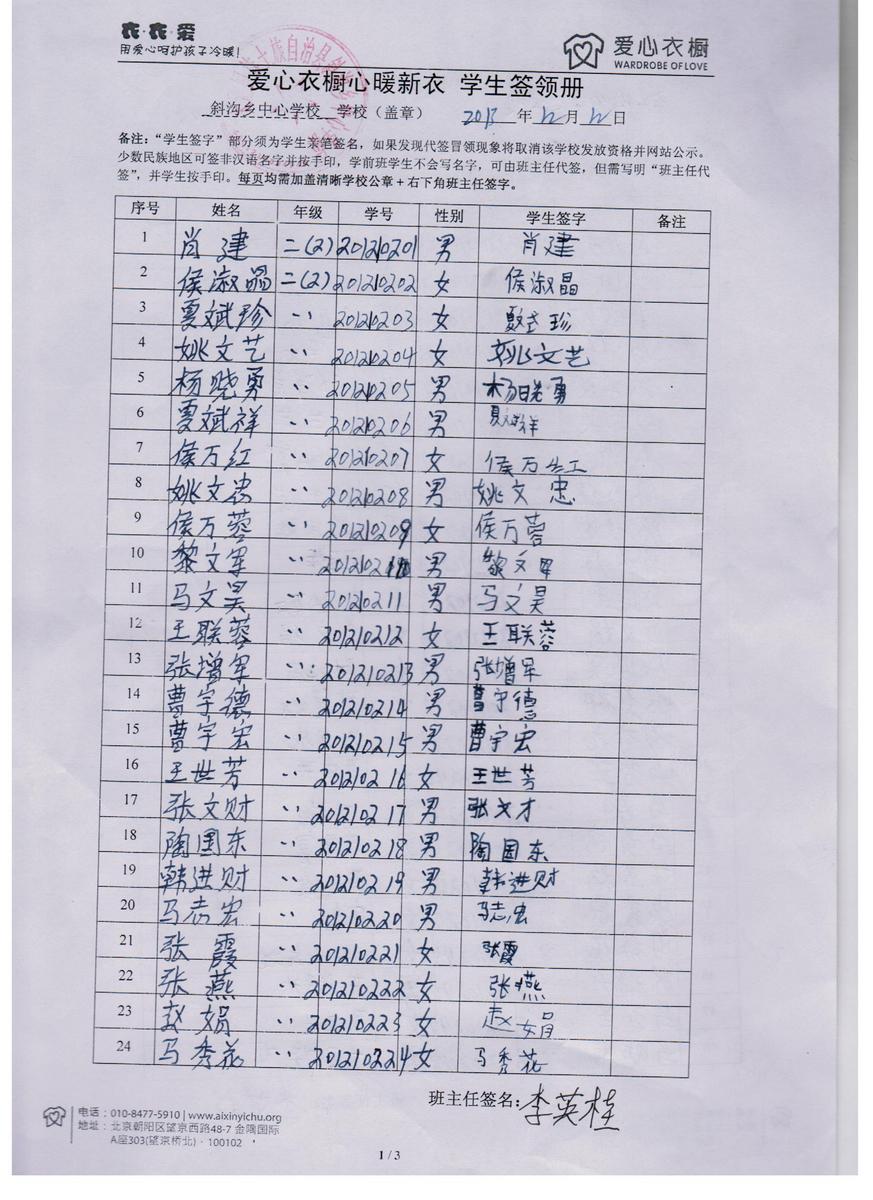 衣·衣·爱
用爱心呵护孩子冷暖!
爱心衣橱
WARDROBE OF LOVE
土族自治县
爱心衣橱心暖新衣 学生签领册
斜沟乡中心学校 学校（盖章） 2013 年 12 月 12 日
备注：“学生签字”部分须为学生亲笔签名，如果发现代签冒领现象将取消该学校发放资格并网站公示。
少数民族地区可签非汉语名字并按手印，学前班学生不会写名字，可由班主任代签，但需写明“班主任代
签”，并学生按手印。每页均需加盖清晰学校公章+右下角班主任签字。
序号 姓名 年级 学号 性别 学生签字 备注
1 肖建 二(2) 201210201 男 肖建
2 侯淑晶 二(2) 201210202 女 侯淑晶
3 夏斌珍 ‘‘ 201210203 女 夏斌珍
4 姚文艺 ‘‘ 201210204 女 姚文艺
5 杨晓勇 ‘‘ 201210205 男 杨晓勇
6 夏斌祥 ‘‘ 201210206 男 夏斌祥
7 侯万红 ‘‘ 201210207 女 侯万红
8 姚文忠 ‘‘ 201210208 男 姚文忠
9 侯万蓉 ‘‘ 201210209 女 侯万蓉
10 黎文军 ‘‘ 201210210 男 黎文军
11 马文昊 ‘‘ 201210211 男 马文昊
12 王联蓉 ‘‘ 201210212 女 王联蓉
13 张增军 ‘‘ 201210213 男 张增军
14 曹宇德 ‘‘ 201210214 男 曹宇德
15 曹宇宏 ‘‘ 201210215 男 曹宇宏
16 王世芳 ‘‘ 201210216 女 王世芳
17 张文财 ‘‘ 201210217 男 张文才
18 陶国东 ‘‘ 201210218 男 陶国东
19 韩进财 ‘‘ 201210219 男 韩进财
20 马志宏 ‘‘ 201210220 男 马志宏
21 张霞 ‘‘ 201210221 女 张霞
22 张燕 ‘‘ 201210222 女 张燕
23 赵娟 ‘‘ 201210223 女 赵娟
24 马秀花 ‘‘ 201210224 女 马秀花
班主任签名：李英桂
电话：010-8477-5910 | www.aixinyichu.org
地址：北京朝阳区望京西路48-7 金隅国际
A座303(望京桥北)·100102
1 / 3